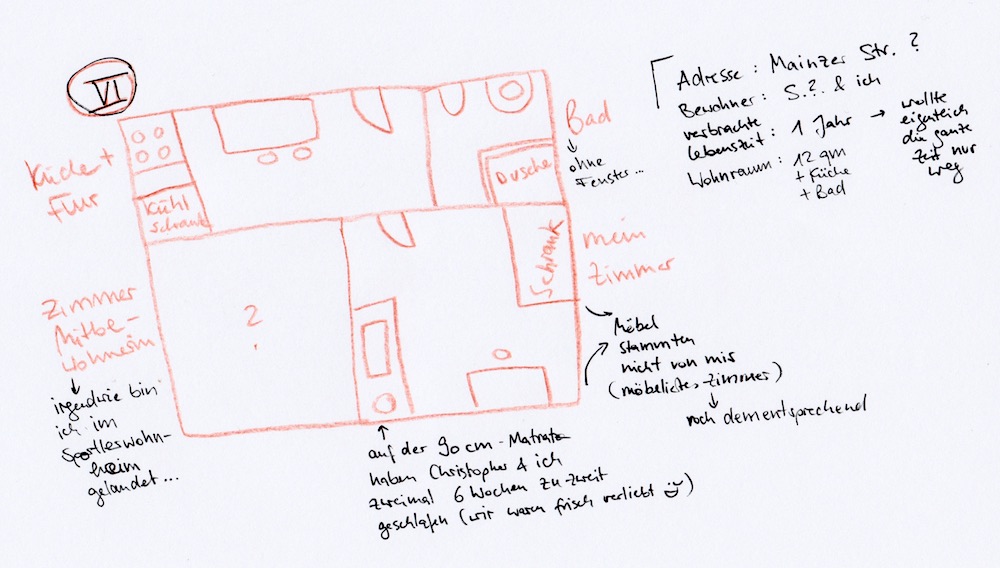 VI
Adresse: Mainzer Str. ?
Bewohner: S.?. & ich
verbrachte
Lebenszeit: 1 Jahr → wollte
eigentlich
die ganze
Zeit nur
weg
Wohnraum: 12 qm
+ Küche
+ Bad
Küche +
Flur
Kühl
schrank
Bad
↓
ohne
Fenster...
Dusche
Schrank
mein
Zimmer
Zimmer
Mitbe-
wohnerin
?
↓
irgendwie bin
ich im
wohn-
heim
gelandet...
Möbel
stammten
nicht von mir
(möbliertes Zimmer)
↓
roch dementsprechend
↑
auf der 90 cm-Matratze
haben Christopher & ich
zweimal 6 Wochen zu zweit
geschlafen (wir waren frisch verliebt )